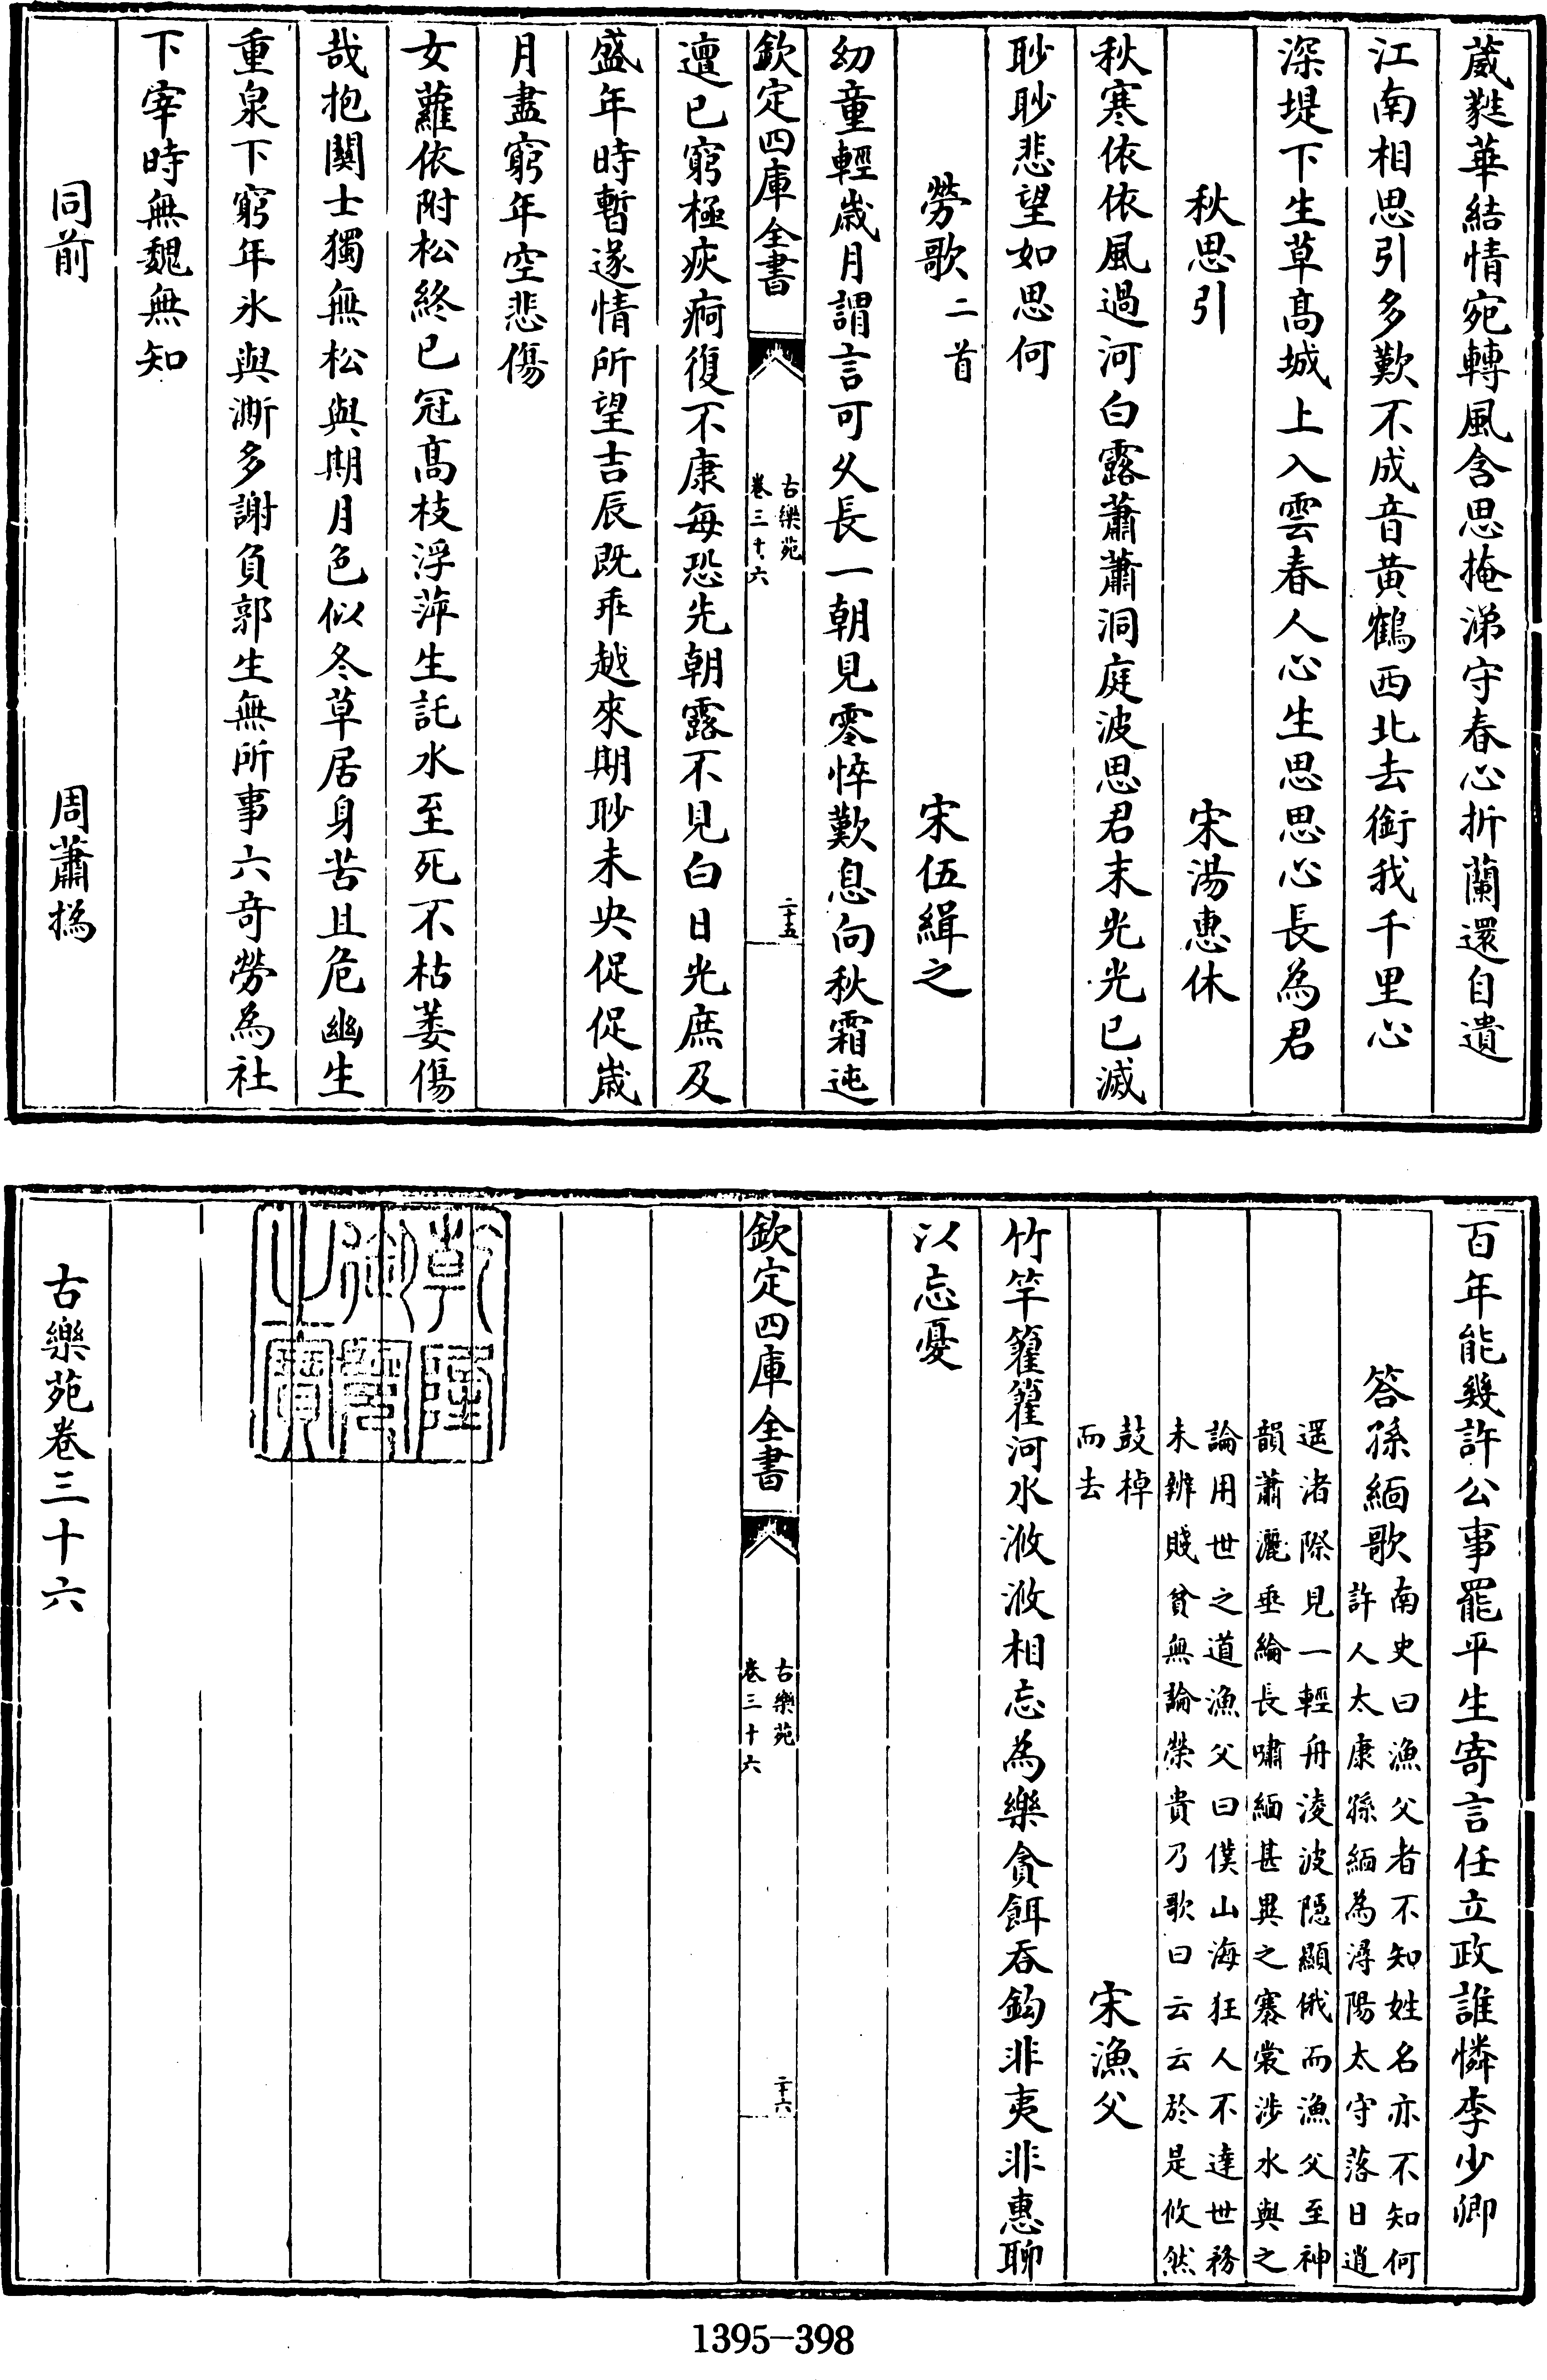 葳蕤華結情宛轉風含思掩涕守春心折蘭還自遺
江南相思引多歎不成音黃鶴西北去銜我千里心
深堤下生草高城上入雲春人心生思思心長為君
秋思引 宋湯惠休
秋寒依依風過河白露蕭蕭洞庭波思君末光光已滅
眇眇悲望如思何
勞歌二首 宋伍緝之
幼童輕歲月謂言可久長一朝見零悴歎息向秋霜迍
欽定四庫全書
古樂苑
卷三十六
二十五
邅已窮極疢痾復不康每恐先朝露不見白日光庶及
盛年時暫遂情所望吉辰既乖越來期眇未央促促歲
月盡窮年空悲傷
女蘿依附松終已冠高枝浮萍生託水至死不枯萎傷
哉抱關士獨無松與期月色似冬草居身苦且危幽生
重泉下窮年氷與澌多謝負郭生無所事六奇勞為社
下宰時無魏無知
同前 周蕭撝
百年能幾許公事罷平生寄言任立政誰憐李少卿
答孫緬歌
南史曰漁父者不知姓名亦不知何
許人太康孫緬為潯陽太守落日逍
遥渚際見一輕舟淩波隱顯俄而漁父至神
韻蕭灑垂綸長嘯緬甚異之褰裳涉水與之
論用世之道漁父曰僕山海狂人不達世務
未辨賤貧無論榮貴乃歌曰云云於是攸然
鼓棹
而去
宋漁父
竹竿籊籊河水浟浟相忘為樂貪餌吞鈎非夷非惠聊
以忘憂
欽定四庫全書
古樂苑
卷三十六
二十六
乾隆御覽之寶
古樂苑卷三十六
1395-398